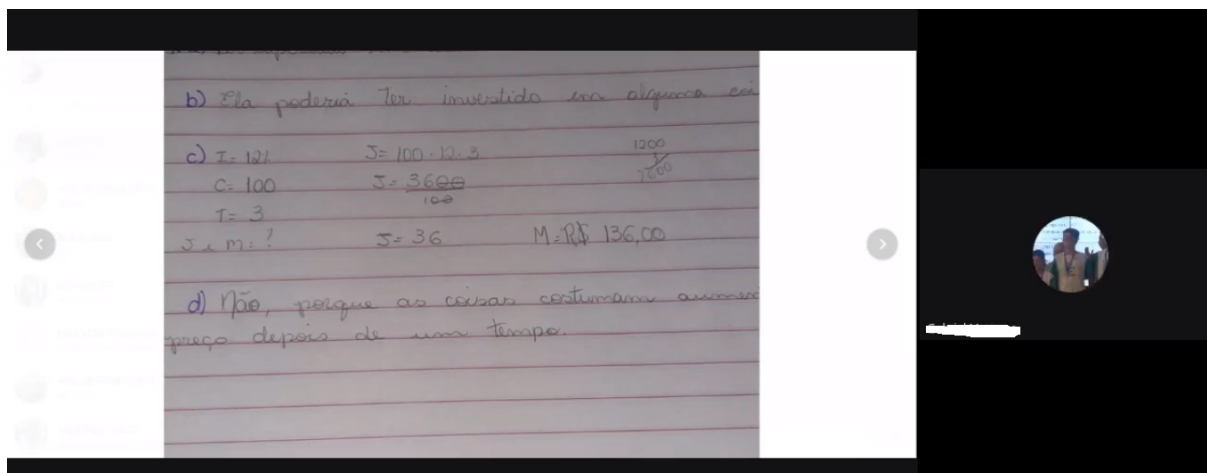 b) Ela poderia ter investido em alguma coi
c) I= 12% J= 100.12.3 1200
C= 100 J= 3600
100
T= 3
J e M= ? J= 36 M= R$ 136,00
d) Não, porque as coisas costumam aumen
preço depois de um tempo.